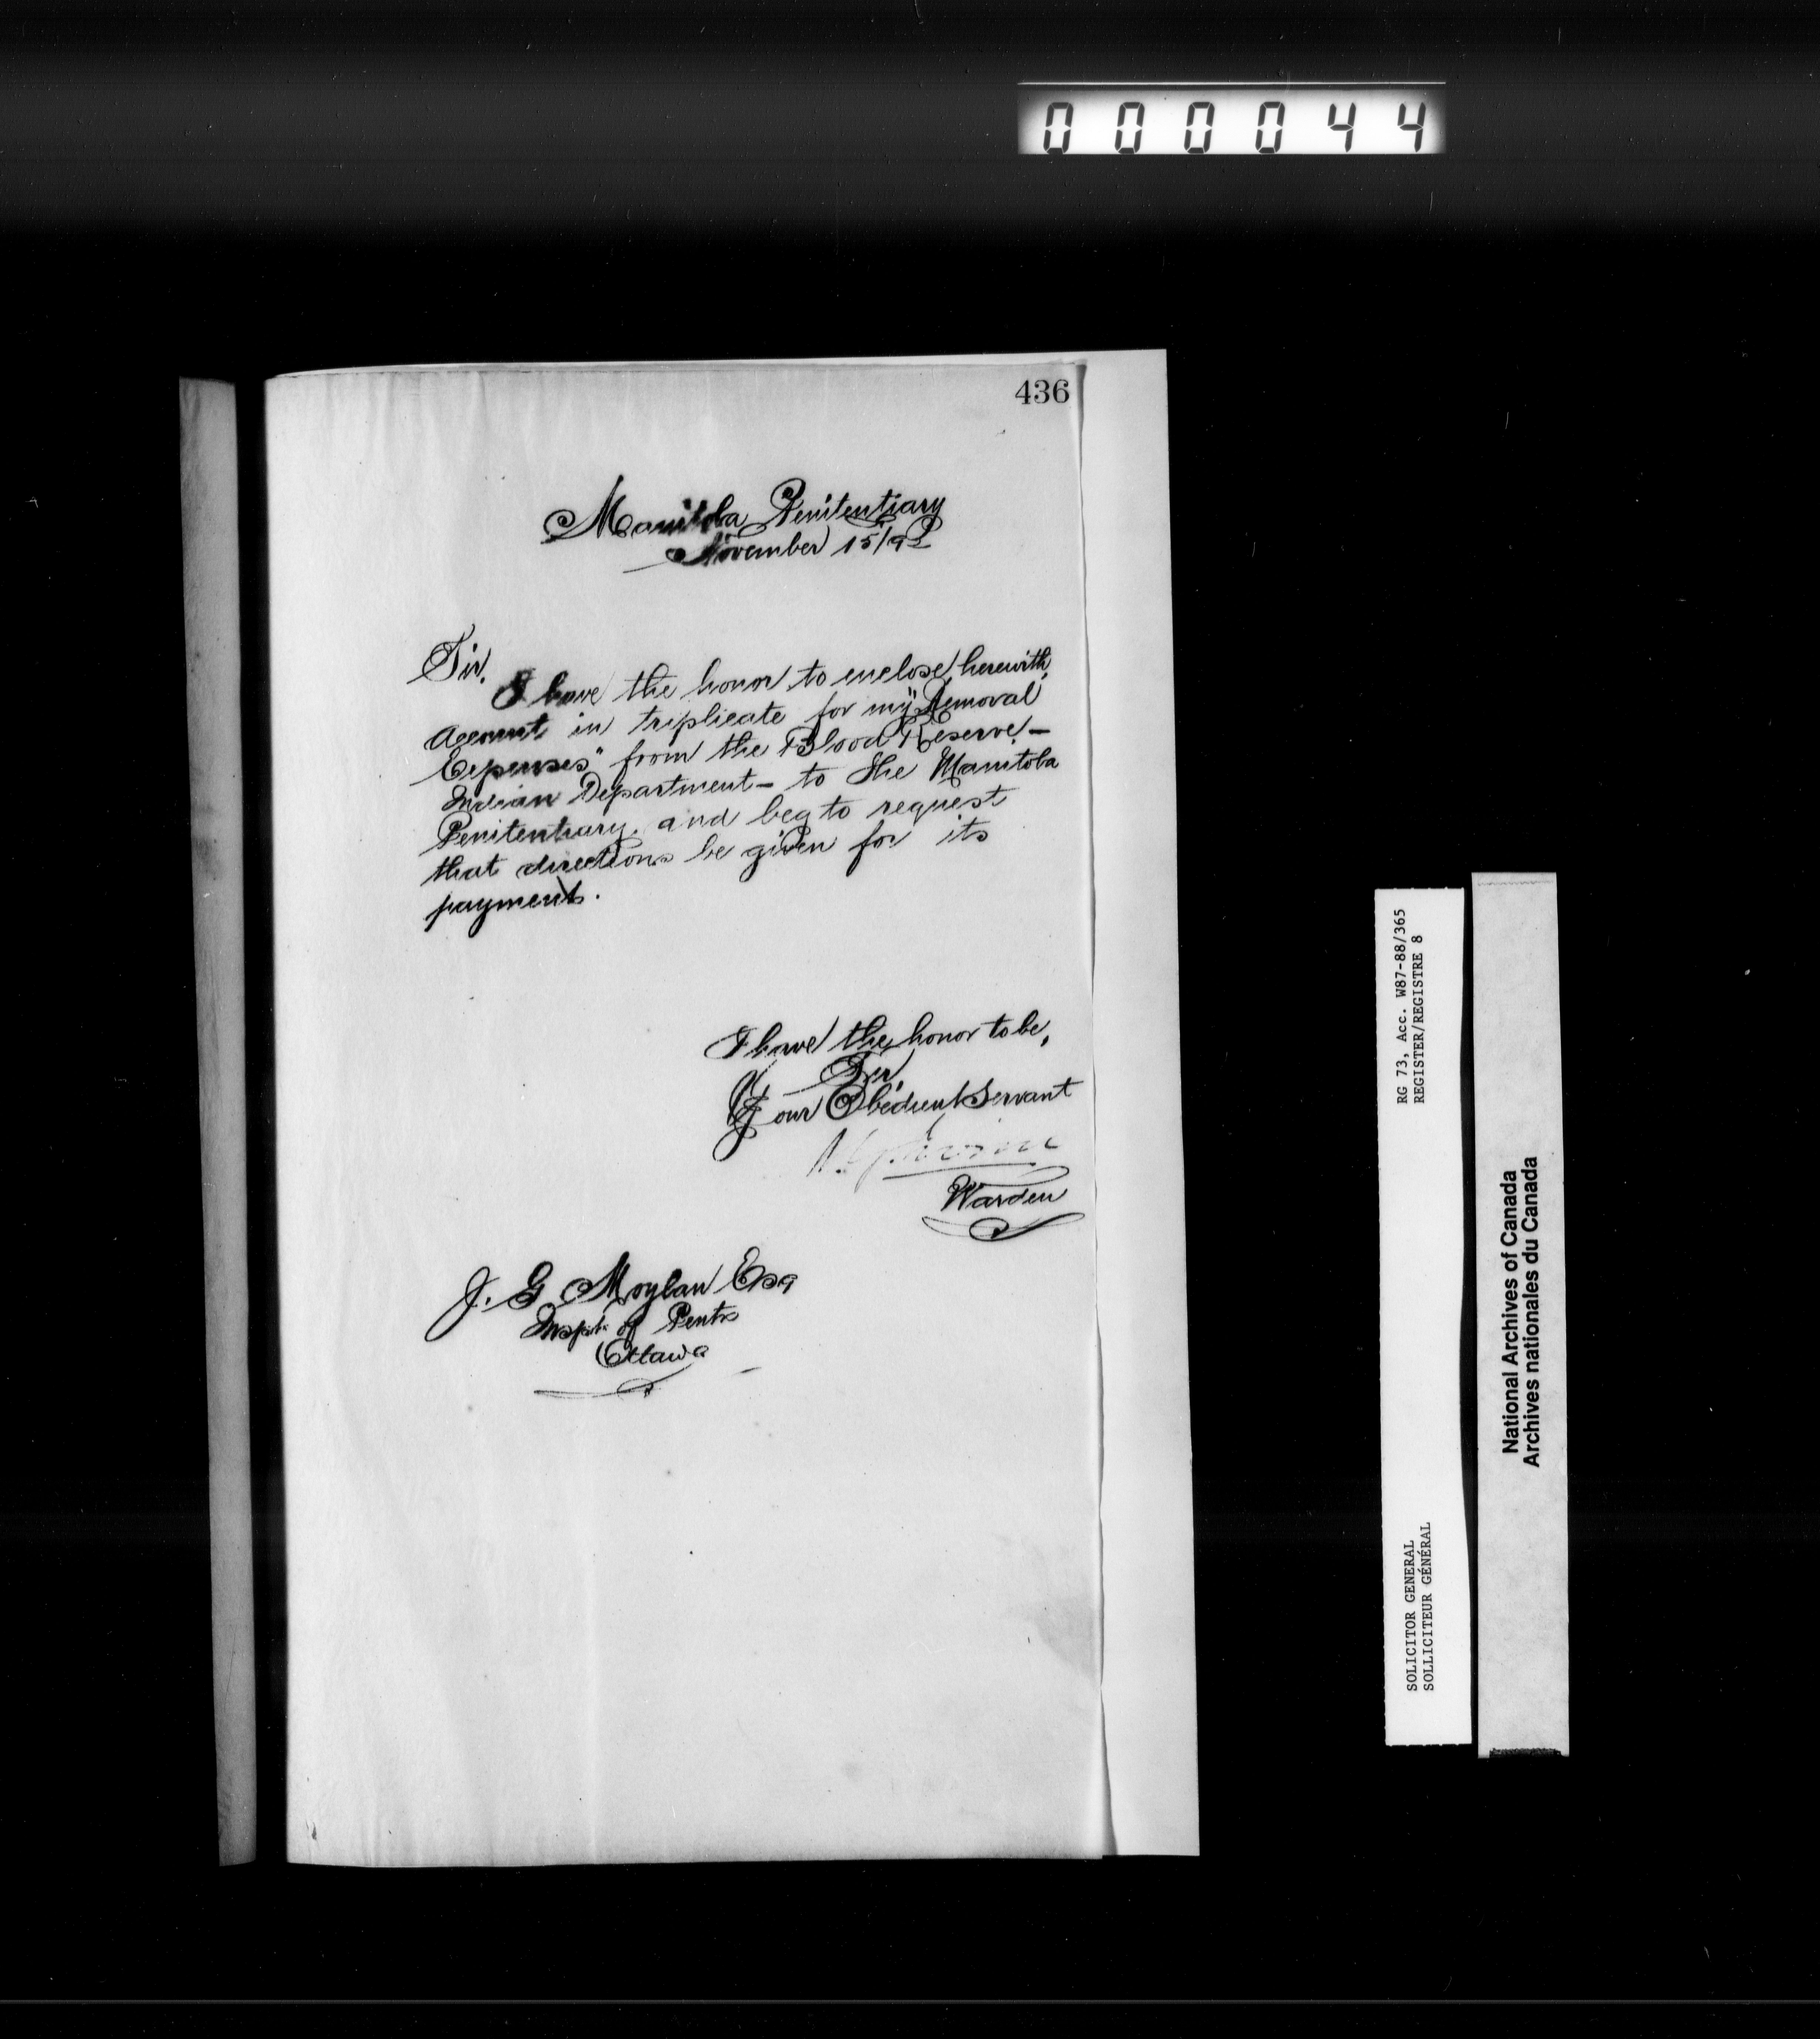 000044
436
Manitoba Penitentiary
November 15/92
Sir,
I have the honor to enclose, herewith,
account in triplicate for my "Removal
Expenses" from the Blood Reserve -
Indian Department - to the Manitoba
Penitentiary, and beg to request
that directions be given for its
payment.
I have the honor to be,
Sir,
Your Obedient Servant
Irvine
Warden
J. G. Moylan Esq
Inspt. of Pents
Ottawa
RG 73, Acc. W87-88/365
REGISTER/REGISTRE 8
SOLICITOR GENERAL
SOLLICITEUR GÉNÉRAL
National Archives of Canada
Archives nationales du Canada